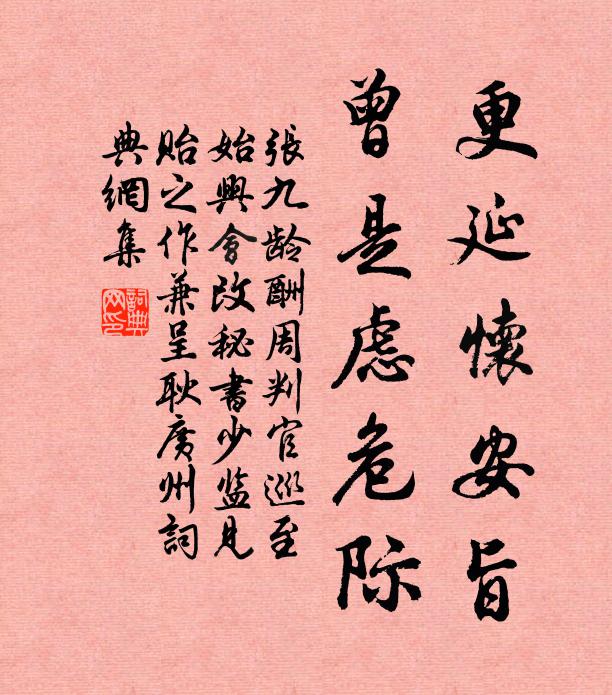 更延懷安旨
曾是慮危际
張九龄酬周判官巡至
始興會改秘書少监見
貽之作兼呈耿廣州詞
典網集
詞典网印